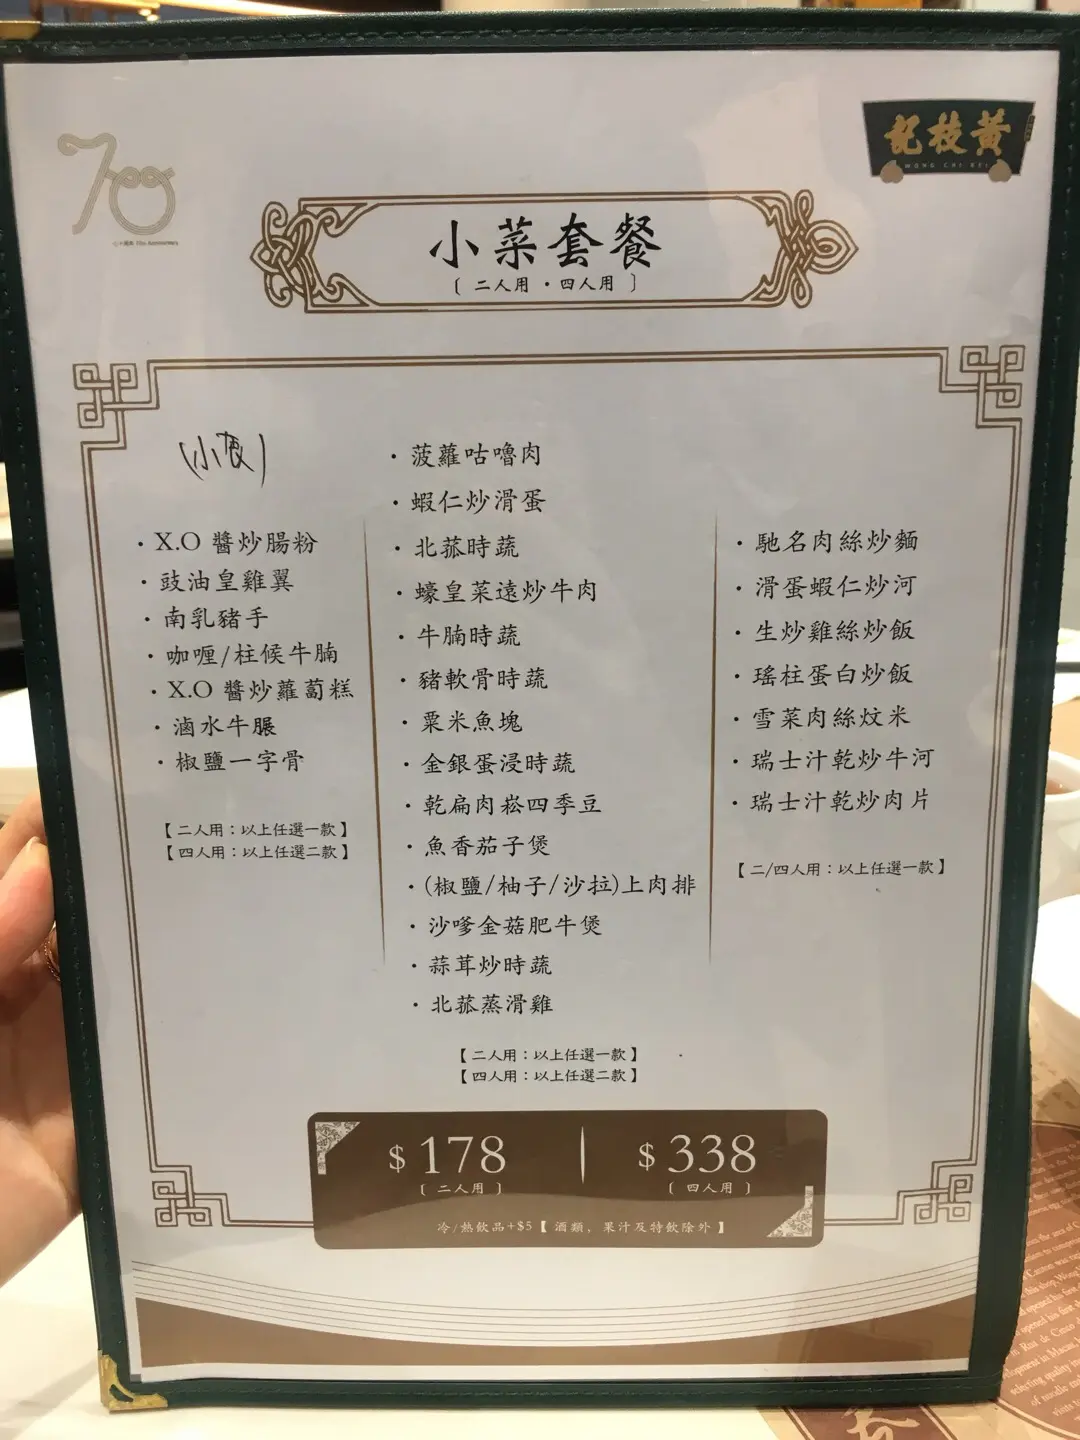 70
七十週年 70th Anniversary
記枝黃
WONG CHI KEI
小菜套餐
〔 二人用 · 四人用 〕
(小食)
· X.O 醬炒腸粉
· 豉油皇雞翼
· 南乳豬手
· 咖喱/柱候牛腩
· X.O 醬炒蘿蔔糕
· 滷水牛𦟌
· 椒鹽一字骨
【二人用：以上任選一款】
【四人用：以上任選二款】
· 菠蘿咕嚕肉
· 蝦仁炒滑蛋
· 北菰時蔬
· 蠔皇菜遠炒牛肉
· 牛腩時蔬
· 豬軟骨時蔬
· 粟米魚塊
· 金銀蛋浸時蔬
· 乾扁肉崧四季豆
· 魚香茄子煲
· (椒鹽/柚子/沙拉)上肉排
· 沙嗲金菇肥牛煲
· 蒜茸炒時蔬
· 北菰蒸滑雞
【二人用：以上任選一款】
【四人用：以上任選二款】
· 馳名肉絲炒麵
· 滑蛋蝦仁炒河
· 生炒雞絲炒飯
· 瑤柱蛋白炒飯
· 雪菜肉絲炆米
· 瑞士汁乾炒牛河
· 瑞士汁乾炒肉片
【二/四人用：以上任選一款】
$ 178
〔 二人用 〕
$ 338
〔 四人用 〕
冷/熱飲品+$5【 酒類，果汁及特飲除外 】